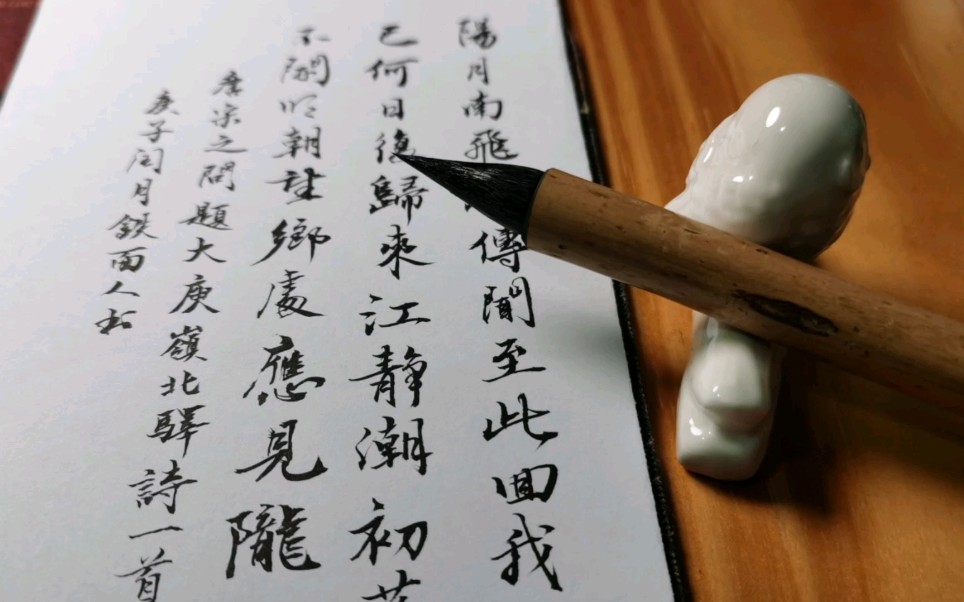 陽月南飛傳聞至此回我
已何日復歸來江静潮初
不開明朝望鄉處應見隴
唐宋之問題大庾嶺北驛詩一首
庚子閏月鉄面人书